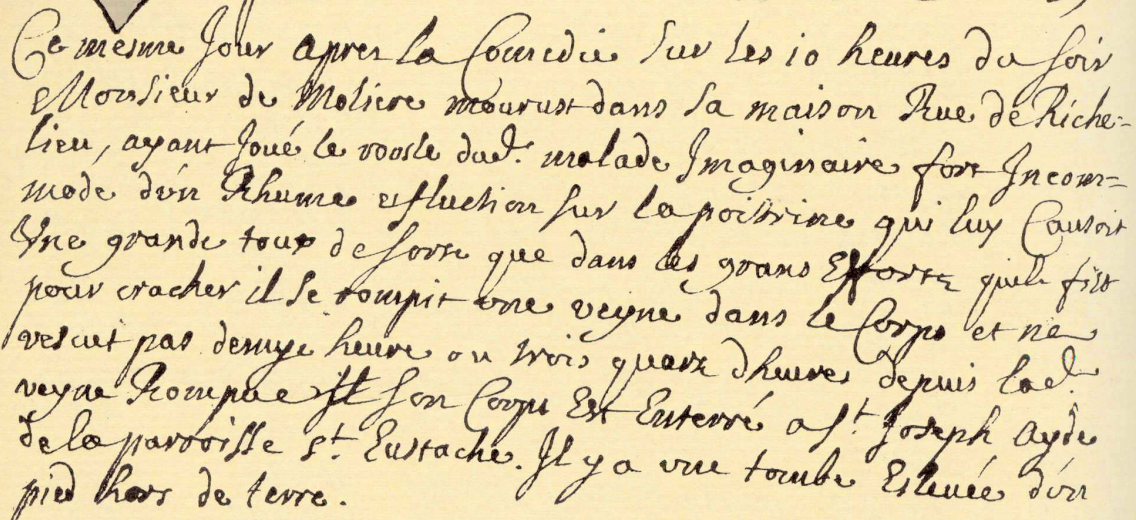 Ce mesme Jour apres la Comedie sur les 10 heures du soir
Monsieur de Moliere mourust dans sa maison Rue de Riche-
lieu, ayant Joué le roosle dud.t malade Imaginaire fort Incom-
mode d'un Rhume et fluction sur la poitrine qui luy Causoit
Une grande toux de sorte que dans les grans Efforts quile fist
pour cracher il se rompit une veyne dans le Corps et ne
vescut pas demye heure ou trois quartz dheures depuis lad.
veyne Rompue son Corps Est Enterré a S.t Joseph Ayde
de la parroisse S.t Eustache. Il y a une tombe Eslevée d'un
pied hors de terre.